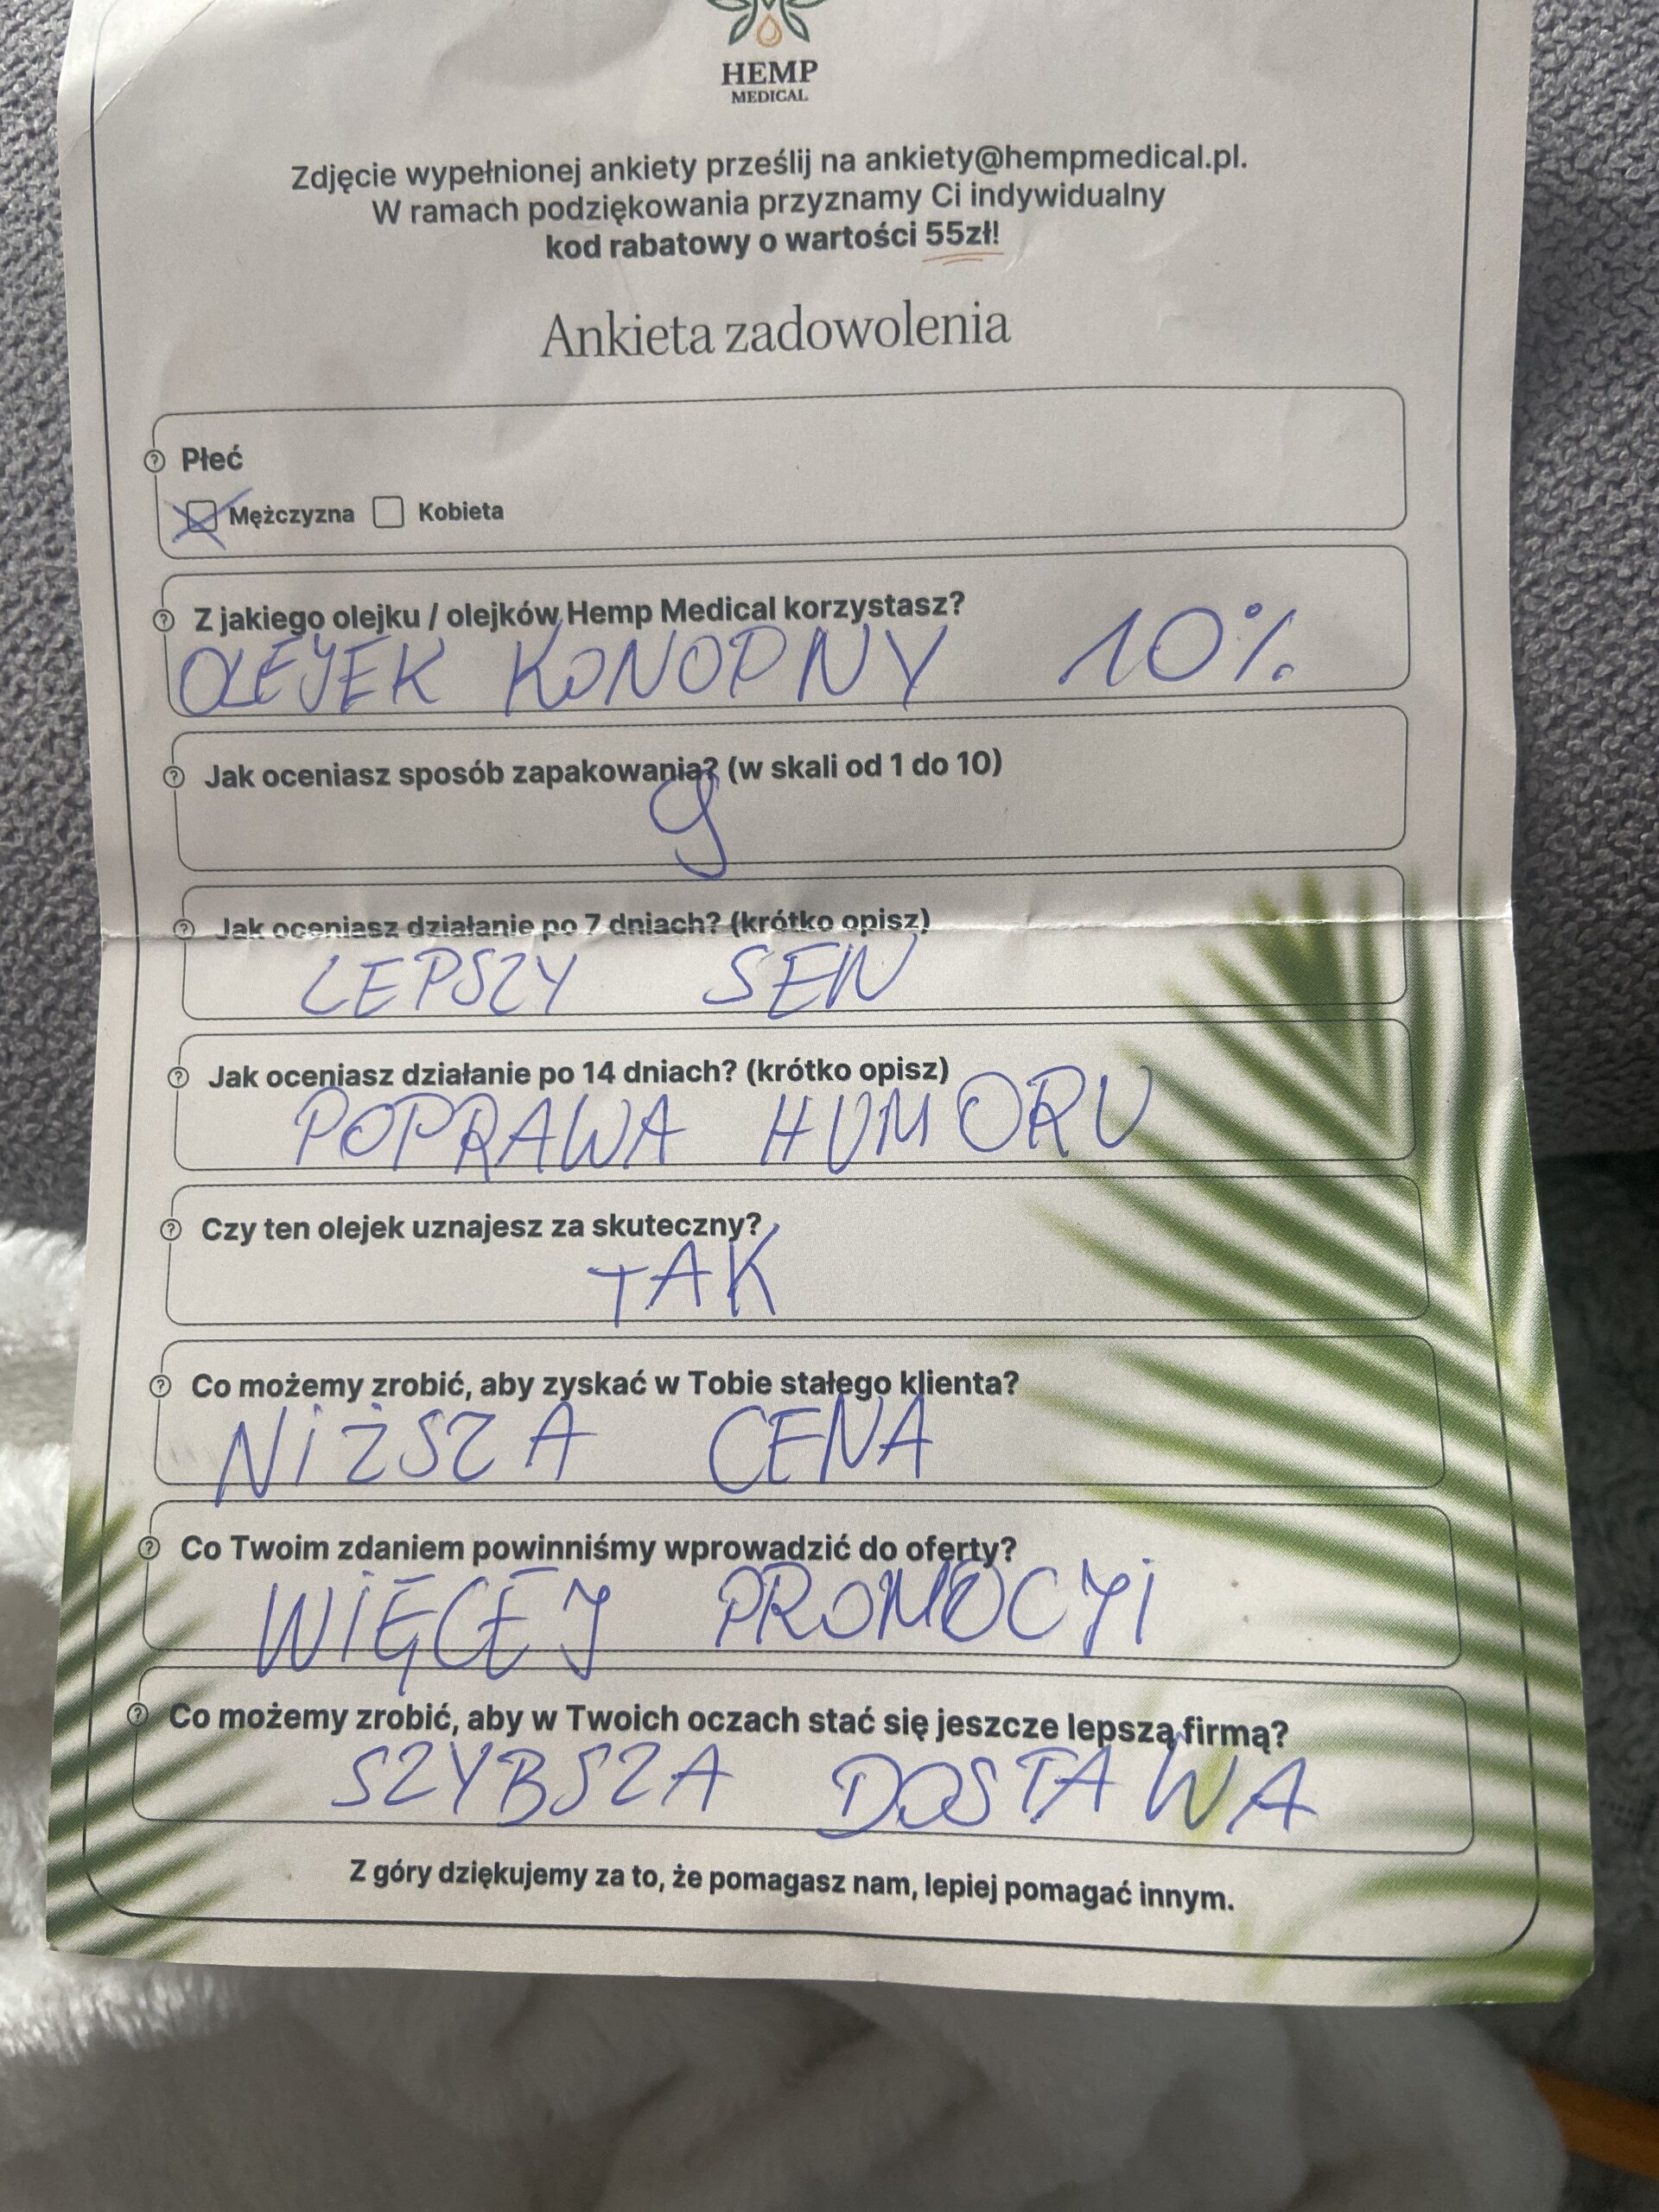 HEMP
MEDICAL
Zdjęcie wypełnionej ankiety prześlij na ankiety@hempmedical.pl.
W ramach podziękowania przyznamy Ci indywidualny
kod rabatowy o wartości 55zł!
Ankieta zadowolenia
Płeć
Mężczyzna Kobieta
Z jakiego olejku / olejków Hemp Medical korzystasz?
OLEJEK KONOPNY 10%
Jak oceniasz sposób zapakowania? (w skali od 1 do 10)
9
Jak oceniasz działanie po 7 dniach? (krótko opisz)
LEPSZY SEN
Jak oceniasz działanie po 14 dniach? (krótko opisz)
POPRAWA HUMORU
Czy ten olejek uznajesz za skuteczny?
TAK
Co możemy zrobić, aby zyskać w Tobie stałego klienta?
NIŻSZA CENA
Co Twoim zdaniem powinniśmy wprowadzić do oferty?
WIĘCEJ PROMOCYI
Co możemy zrobić, aby w Twoich oczach stać się jeszcze lepszą firmą?
SZYBSZA DOSTAWA
Z góry dziękujemy za to, że pomagasz nam, lepiej pomagać innym.